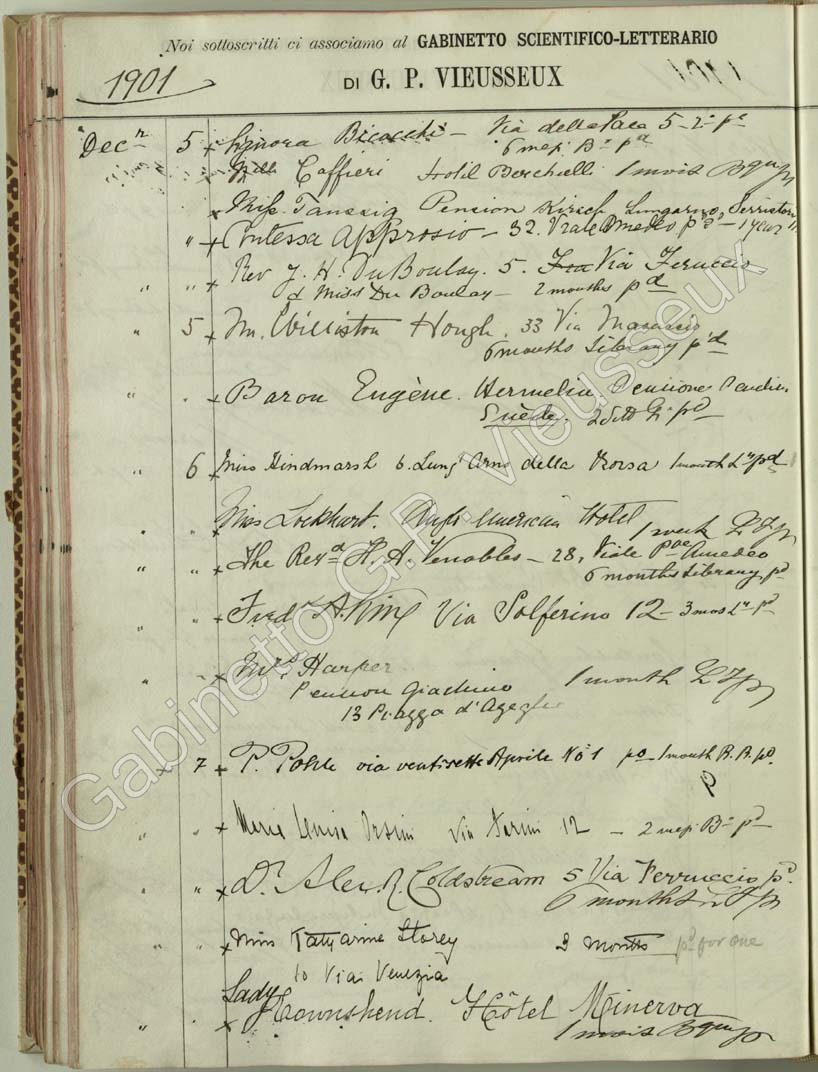 Noi sottoscritti ci associamo al GABINETTO SCIENTIFICO-LETTERARIO
1901
DI G. P. VIEUSSEUX
Decr 5 Signora Via della 5 - 2° po
6 mesi Bn pd
Mlle Caffieri Hotel Berchielli 1 mois
Miss Pension Kirsch Lungarno Serristori
" Contessa - 32. Viale Amedeo pd - 1 year
" " Rev J. H. DuBoulay. 5. Via Feruccio
& Miss Du Boulay - 2 months pd
" 5 Williston Hough. 33 Via Masaccio
6 months Library p'd
" " Baron Eugène Hermelin. Pensione
Suède. pd
" 6 Miss Hindmarsh 6. Lung' Arno della 1 month Ly pd
" " Miss Lockhart. Anglo American Hotel
1 week
" " The Revd H. A. Venables - 28, Viale Pce Amedeo
6 months Library pd
" " Fredk A. Via Solferino 12 - 3 mos Ly pd
" " Mrs Harper 1 month
Pension
13 Piazza d'Azeglio
" 7 P. via ventisette Aprile No 1 po 1 month R. R. pd.
" " Maria Luisa Orsini Via Farini 12 - 2 mesi Bn pd
" " Dr. Alex. Coldstream 5 Via Ferruccio pd.
6 months
" " Miss Katharine Storey 3 months pd for one
10 Via Venezia
Lady
" " Townshend. Hôtel Minerva
1 mois
Gabinetto G.P. Vieusseux